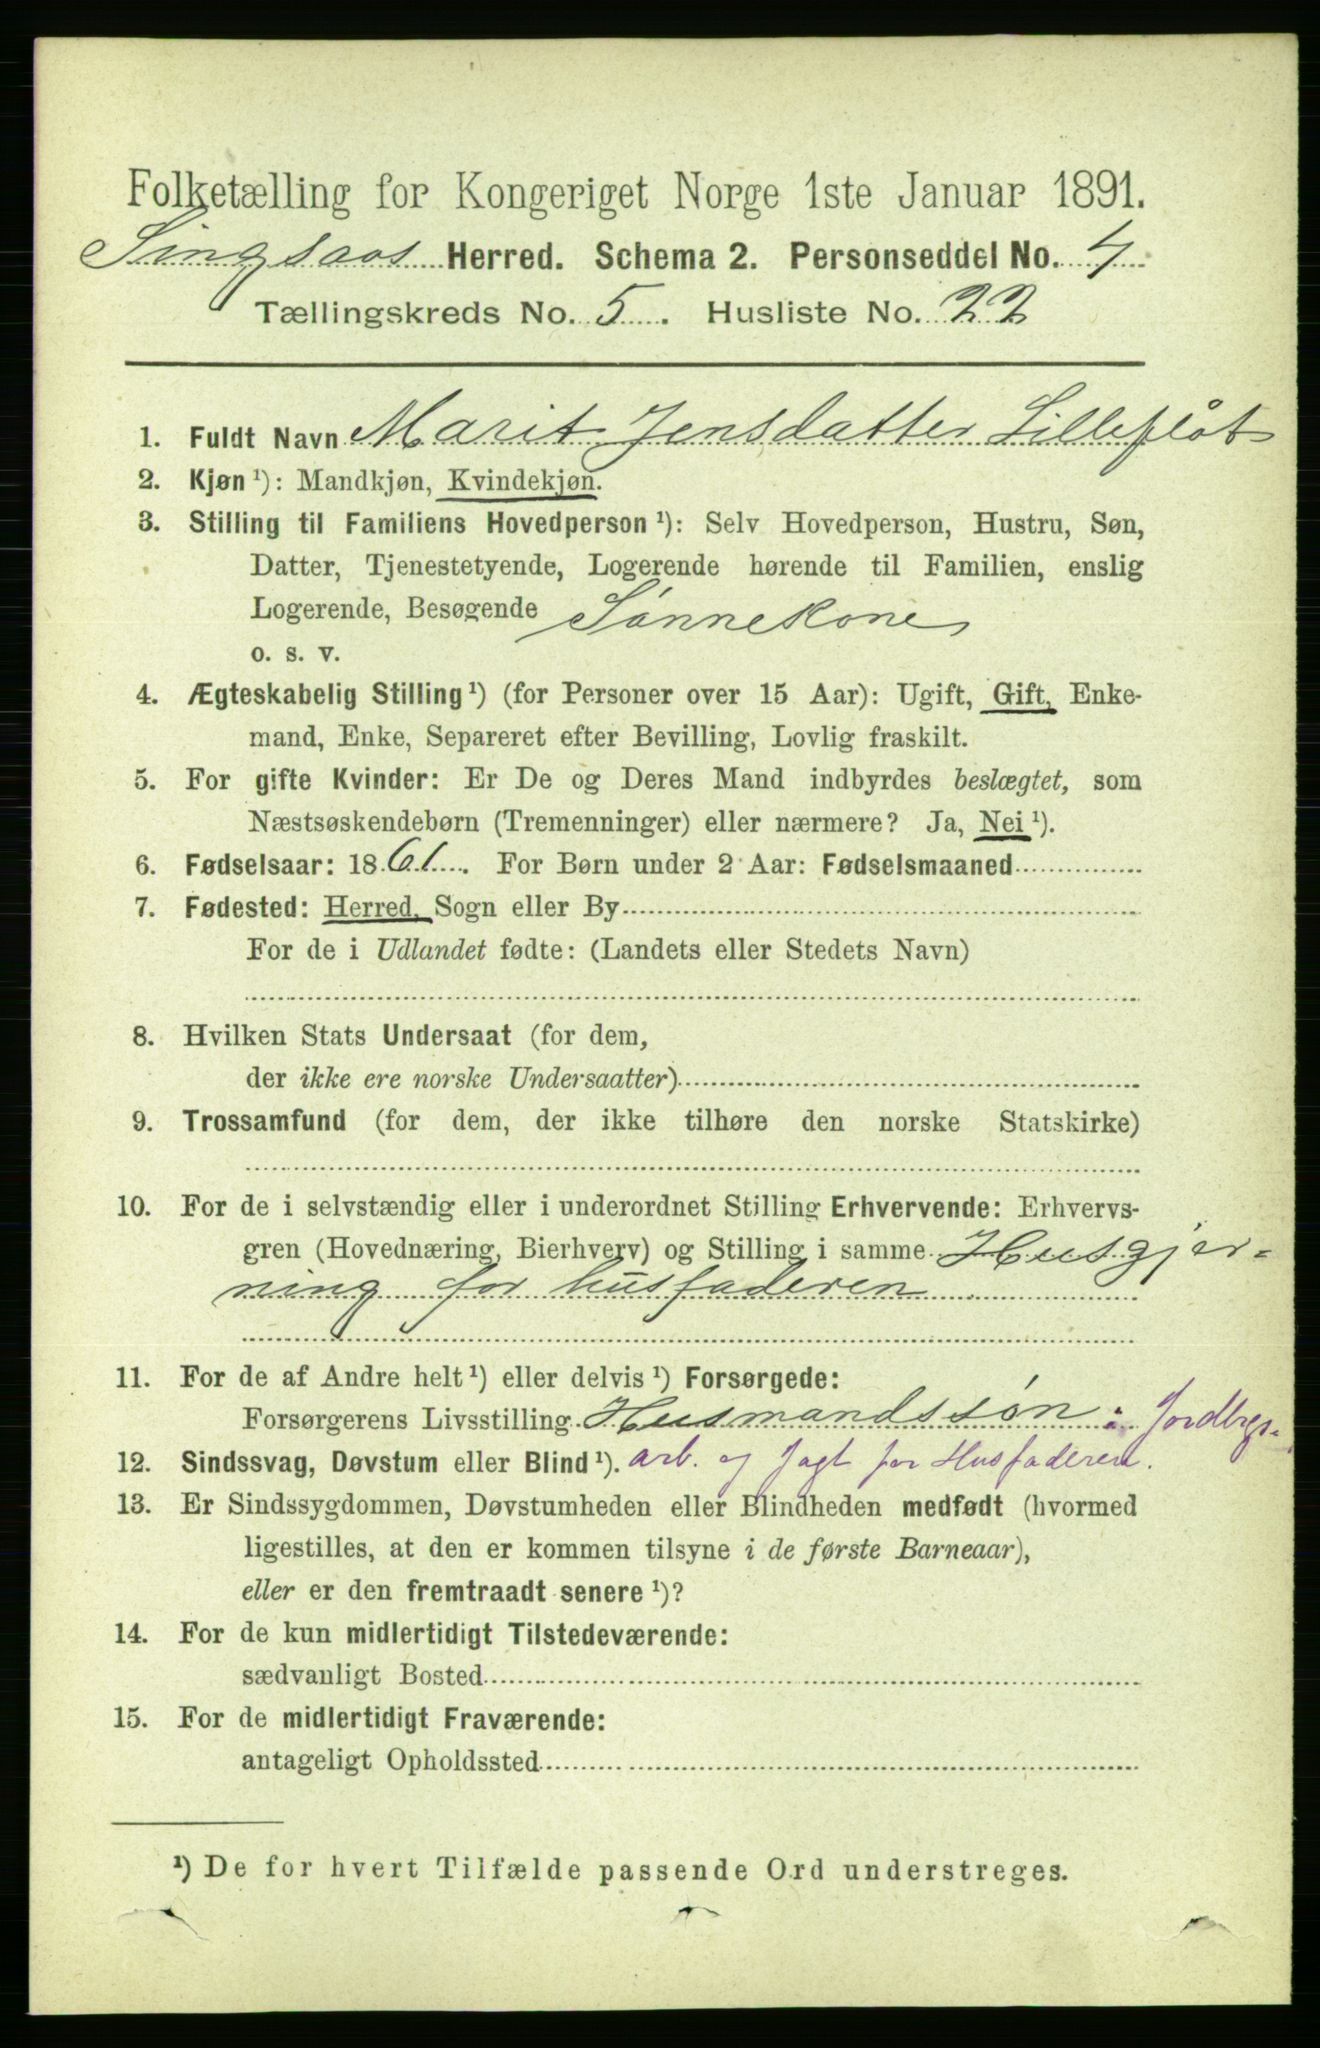 Folketælling for Kongeriget Norge 1ste Januar 1891.
Singsaas Herred. Schema 2. Personseddel No. 4
Tællingskreds No. 5. Husliste No. 22
1. Fuldt Navn Marit Jensdatter Lilleflåt
2. Kjøn ¹): Mandkjøn, Kvindekjøn.
3. Stilling til Familiens Hovedperson ¹): Selv Hovedperson, Hustru, Søn,
Datter, Tjenestetyende, Logerende hørende til Familien, enslig
Logerende, Besøgende Sønnekone
o. s. v.
4. Ægteskabelig Stilling ¹) (for Personer over 15 Aar): Ugift, Gift, Enke-
mand, Enke, Separeret efter Bevilling, Lovlig fraskilt.
5. For gifte Kvinder: Er De og Deres Mand indbyrdes beslægtet, som
Næstsøskendebørn (Tremenninger) eller nærmere? Ja, Nei ¹).
6. Fødselsaar: 1861. For Børn under 2 Aar: Fødselsmaaned
7. Fødested: Herred, Sogn eller By
For de i Udlandet fødte: (Landets eller Stedets Navn)
8. Hvilken Stats Undersaat (for dem,
der ikke ere norske Undersaatter)
9. Trossamfund (for dem, der ikke tilhøre den norske Statskirke)
10. For de i selvstændig eller i underordnet Stilling Erhvervende: Erhvervs-
gren (Hovednæring, Bierhverv) og Stilling i samme Husgjer-
ning for husfaderen
11. For de af Andre helt ¹) eller delvis ¹) Forsørgede:
Forsørgerens Livsstilling Husmandssøn: Jordbrgs-
12. Sindssvag, Døvstum eller Blind ¹). arb. og Jagt for Husfaderen.
13. Er Sindssygdommen, Døvstumheden eller Blindheden medfødt (hvormed
ligestilles, at den er kommen tilsyne i de første Barneaar),
eller er den fremtraadt senere ¹)?
14. For de kun midlertidigt Tilstedeværende:
sædvanligt Bosted
15. For de midlertidigt Fraværende:
antageligt Opholdssted
¹) De for hvert Tilfælde passende Ord understreges.